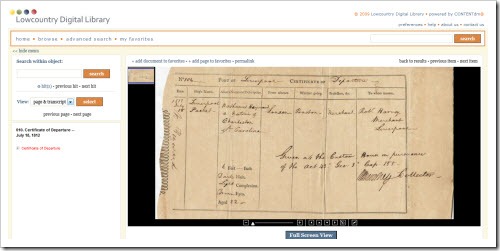 Lowcountry Digital Library
© 2009 Lowcountry Digital Library • powered by CONTENTdm®
preferences • help • about us • contact us
home • browse • advanced search • my favorites
search
<< hide menu
Search within object:
search
0 hit(s) • previous hit • next hit
View: page & transcript select
previous page • next page
010. Certificate of Departure --
July 18, 1812
Certificate of Departure
add document to favorites • add page to favorites • permalink
back to results • previous item • next item
Port of Liverpool Certificate of Departure
Liverpool
a Native of London London Merchant Robt
Charleston Merchant
So. Carolina Liverpool
Given at the Custom House in pursuance
of the Act
Collector
Complexion
Aged
Full Screen View